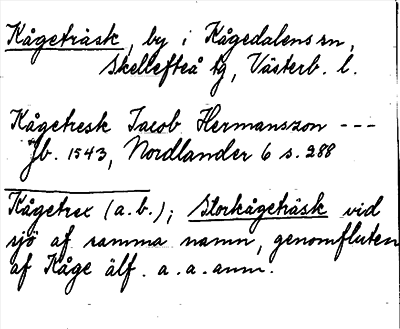 Kågeträsk, by i Kågedalens sn,
Skellefteå tg, Västerb. l.
Kågetresk Jacob Hermansson ---
Jb. 1543, Nordlander 6 s. 288
Kågetrex (a.b.); Storkågeträsk vid
sjö af samma namn, genomfluten
af Kåge älf. a.a. anm.